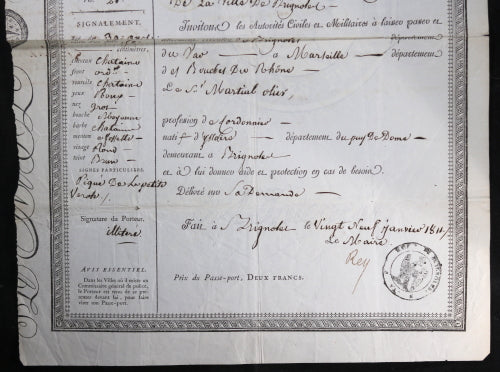 De La Ville De Brignoles
SIGNALEMENT.
centimètres,
cheveux Chataine
front ord.re
sourcils Chataine
yeux
nez gros
bouche Moyenne
barbe Chataine
menton
visage Rond
teint Brun
SIGNES PARTICULIERS.
Piqué De La petite
Verole
Signature du Porteur.
illitéré
AVIS ESSENTIEL.
Dans les Villes où il existe un
Commissaire général de police,
le Porteur est tenu de se présenter
devant lui, pour faire
viser son Passe-port.
Invitons les Autorités Civiles et Militaires à laisser passer et
département
du Var — à Marseille — département
des Bouches Du Rhône —
Le Sr Martial olier,
profession de Cordonnier
natif d' — département du puy De Dome
demeurant à Brignoles
et à lui donner aide et protection en cas de besoin.
Délivré sur Sa Demande —
Fait à Brignoles le Vingt Neuf janvier
Le Maire
Rey
Prix du Passe-port, DEUX FRANCS.